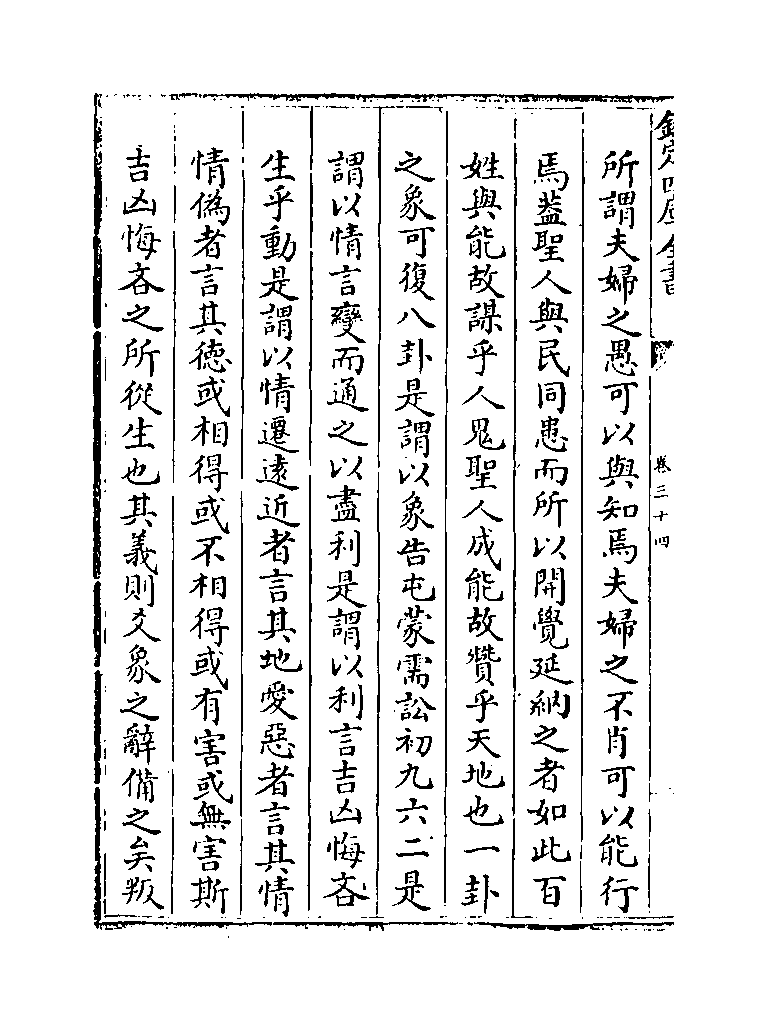 欽定四庫全書
卷三十四
所謂夫婦之愚可以與知焉夫婦之不肖可以能行
焉葢聖人與民同患而所以開覺延納之者如此百
姓與能故謀乎人鬼聖人成能故贊乎天地也一卦
之象可復八卦是謂以象告屯蒙需訟初九六二是
謂以情言變而通之以盡利是謂以利言吉凶悔吝
生乎動是謂以情遷遠近者言其地愛惡者言其情
情僞者言其德或相得或不相得或有害或無害斯
吉凶悔吝之所從生也其義則爻象之辭備之矣叛